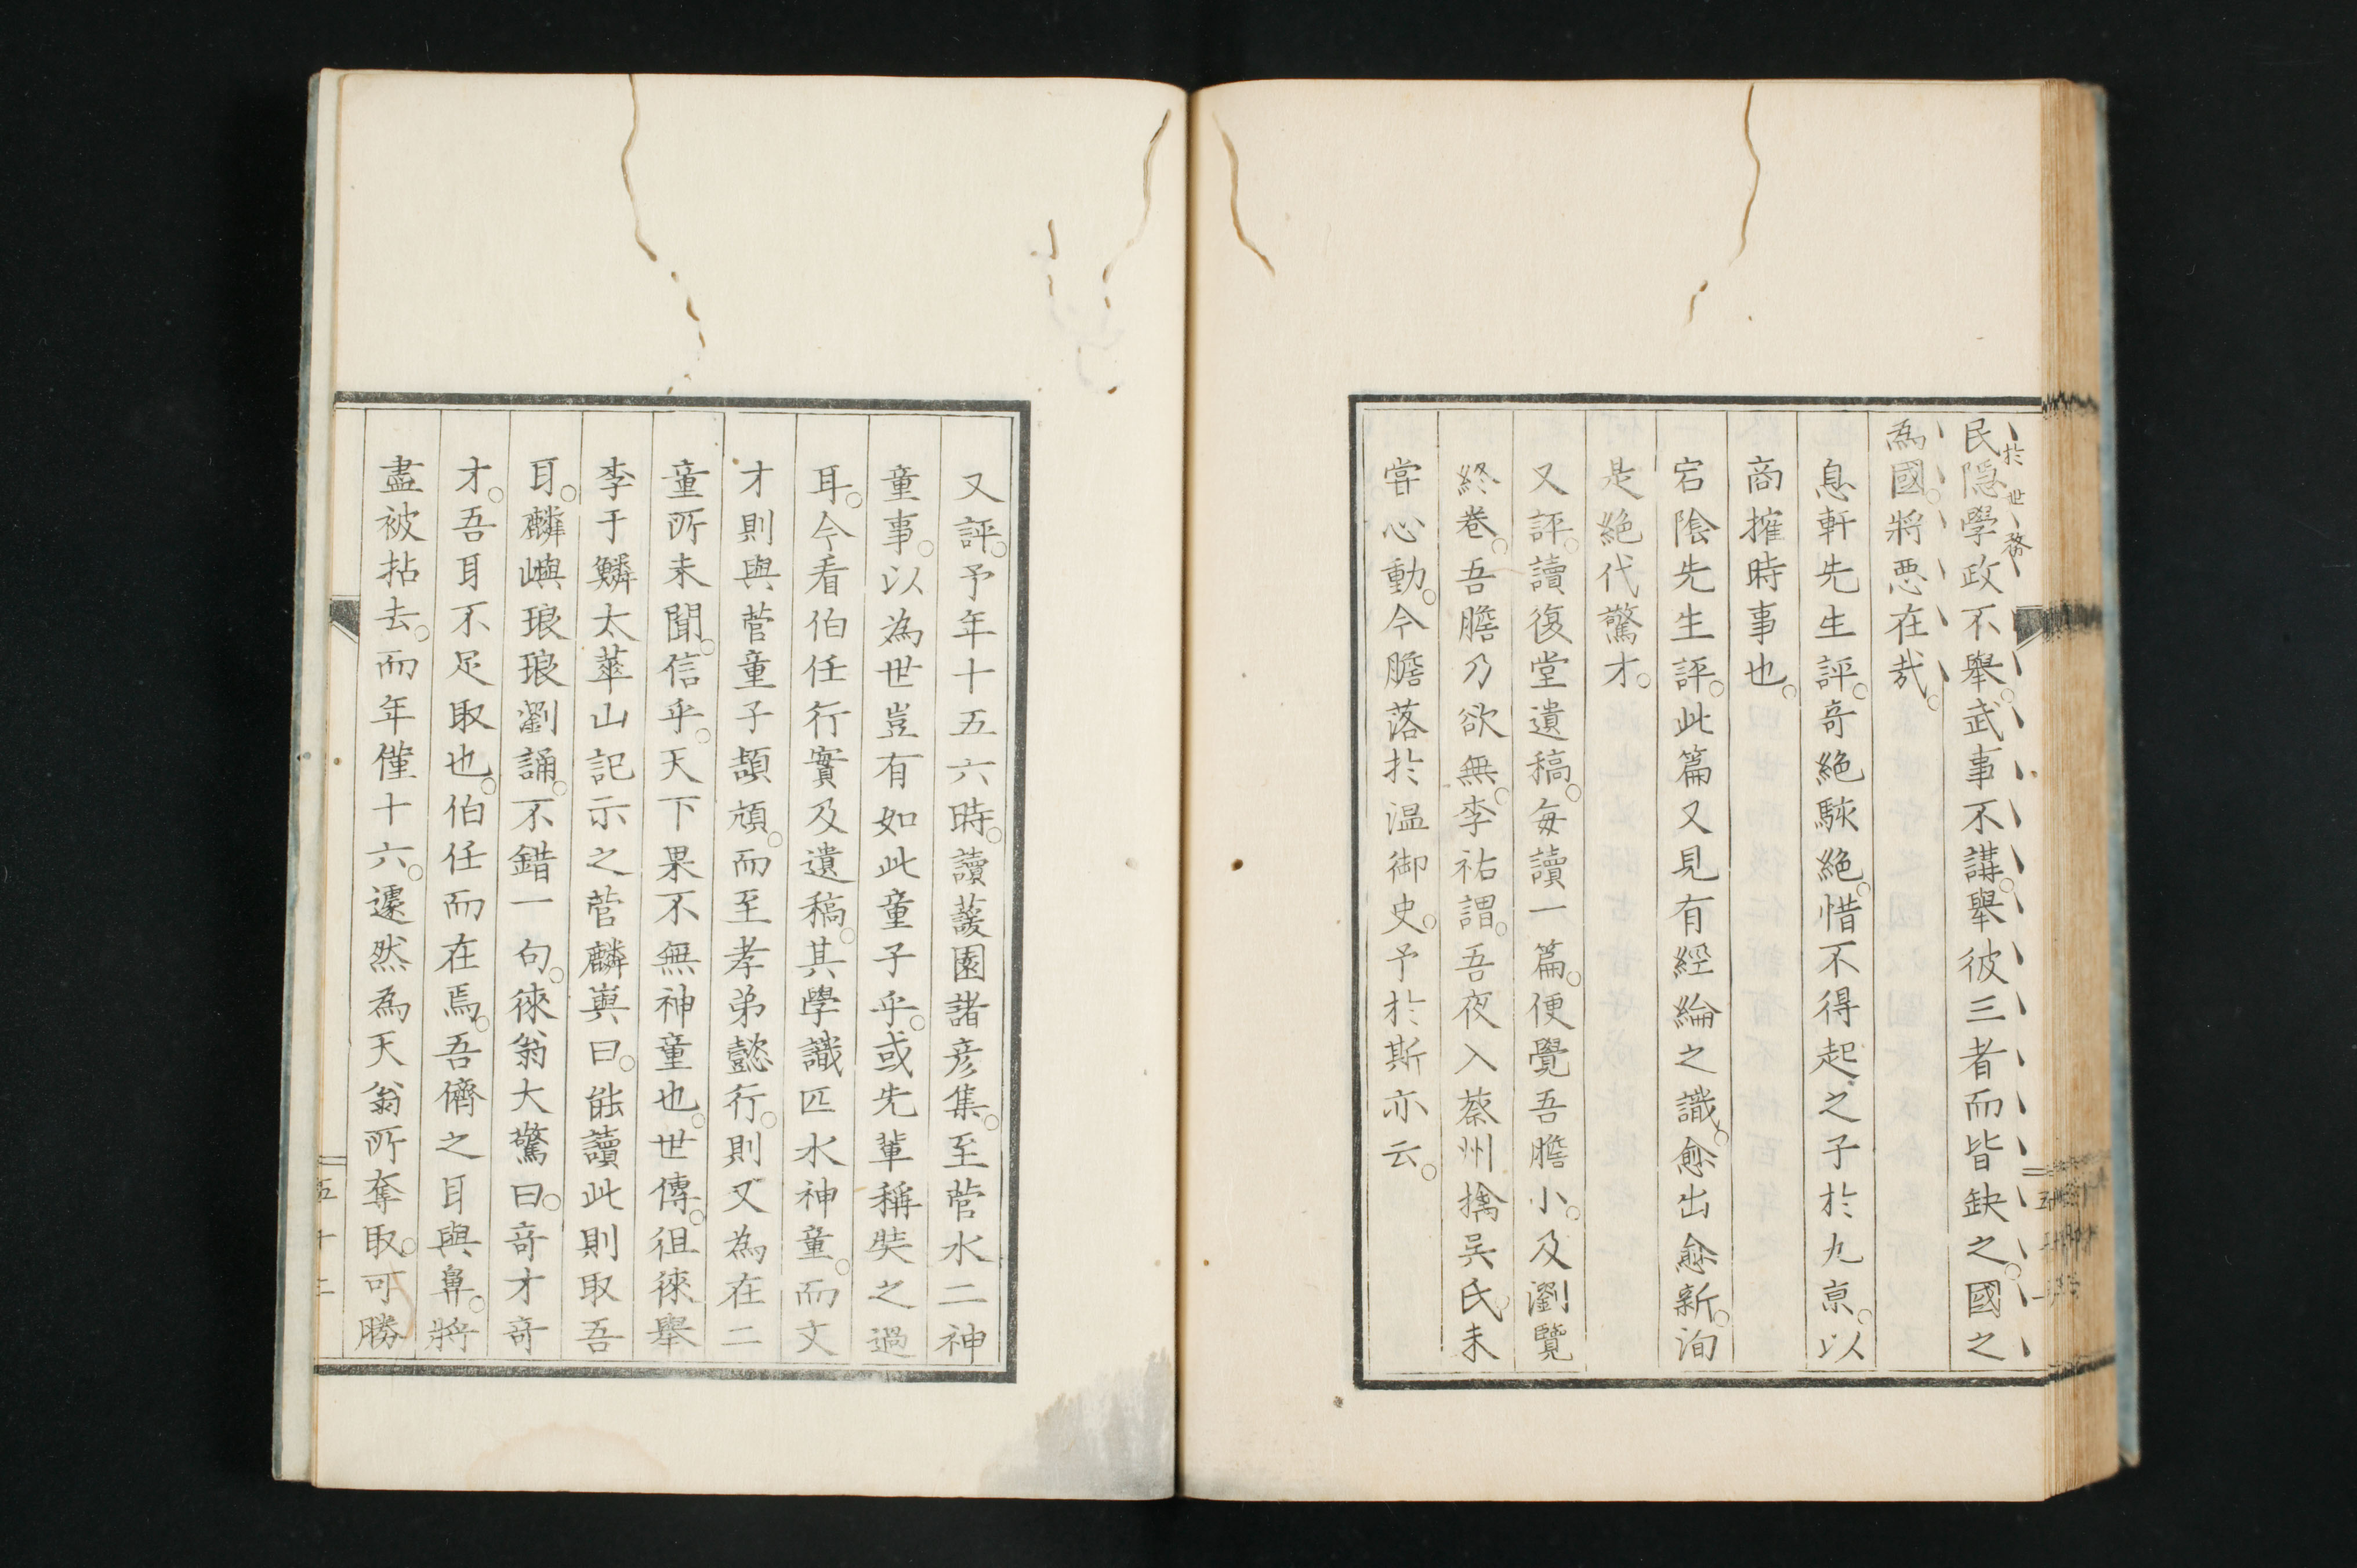 於世務
民隱學政不舉。武事不講。舉彼三者而皆缺之。國之
為國。將惡在哉。
息軒先生評。奇絕駭絕。惜不得起之子於九京。以
商搉時事也。
宕陰先生評。此篇又見有經綸之識。愈出愈新。洵
是絕代驚才。
又評。讀復堂遺稿。每讀一篇。便覺吾膽小。及瀏覽
終卷。吾膽乃欲無。李祐謂。吾夜入蔡州擒吳氏。未
嘗心動。今膽落於溫御史。予於斯亦云。
又評。予年十五六時。讀蘐園諸彥集。至菅水二神
童事。以為世豈有如此童子乎。或先輩稱奘之過
耳。今看伯任行實及遺稿。其學識匹水神童。而文
才則與菅童子頡頏。而至孝弟懿行。則又為在二
童所未聞。信乎。天下果不無神童也。世傳。徂徠舉
李于鱗太華山記示之菅麟嶼曰。能讀此則取吾
耳。麟嶼琅琅瀏誦。不錯一句。徠翁大驚曰。奇才奇
才。吾耳不足取也。伯任而在焉。吾儕之耳與鼻。將
盡被拈去。而年僅十六。遽然為天翁所奪取。可勝
五十二